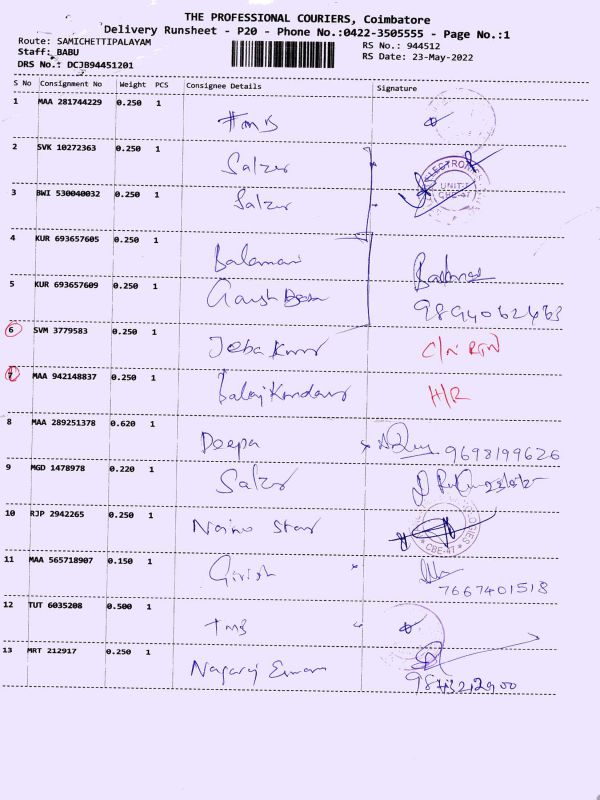 THE PROFESSIONAL COURIERS, Coimbatore
Delivery Runsheet - P20 - Phone No.:0422-3505555 - Page No.:1
Route: SAMICHETTIPALAYAM
RS No.: 944512
Staff: BABU
RS Date: 23-May-2022
DRS No.: DCJB94451201
S No Consignment No Weight PCS Consignee Details Signature
1 MAA 281744229 0.250 1
2 SVK 10272363 0.250 1 Salzer
ELECTRONICS
UNIT-1
CBE-47
3 BWI 530040032 0.250 1 Salzer
4 KUR 693657605 0.250 1 Balamani
5 KUR 693657609 0.250 1
9894062463
6 SVM 3779583 0.250 1 Jeba Kumar C/N RTN
7 MAA 942148837 0.250 1 H/R
8 MAA 289251378 0.620 1 Deepa 9698199626
9 MGD 1478978 0.220 1 Salzer
10 RJP 2942265 0.250 1 Star
CBE-47
11 MAA 565718907 0.150 1 Girish
7667401518
12 TUT 6035208 0.500 1 TMB
13 MRT 212917 0.250 1 Nagaraj